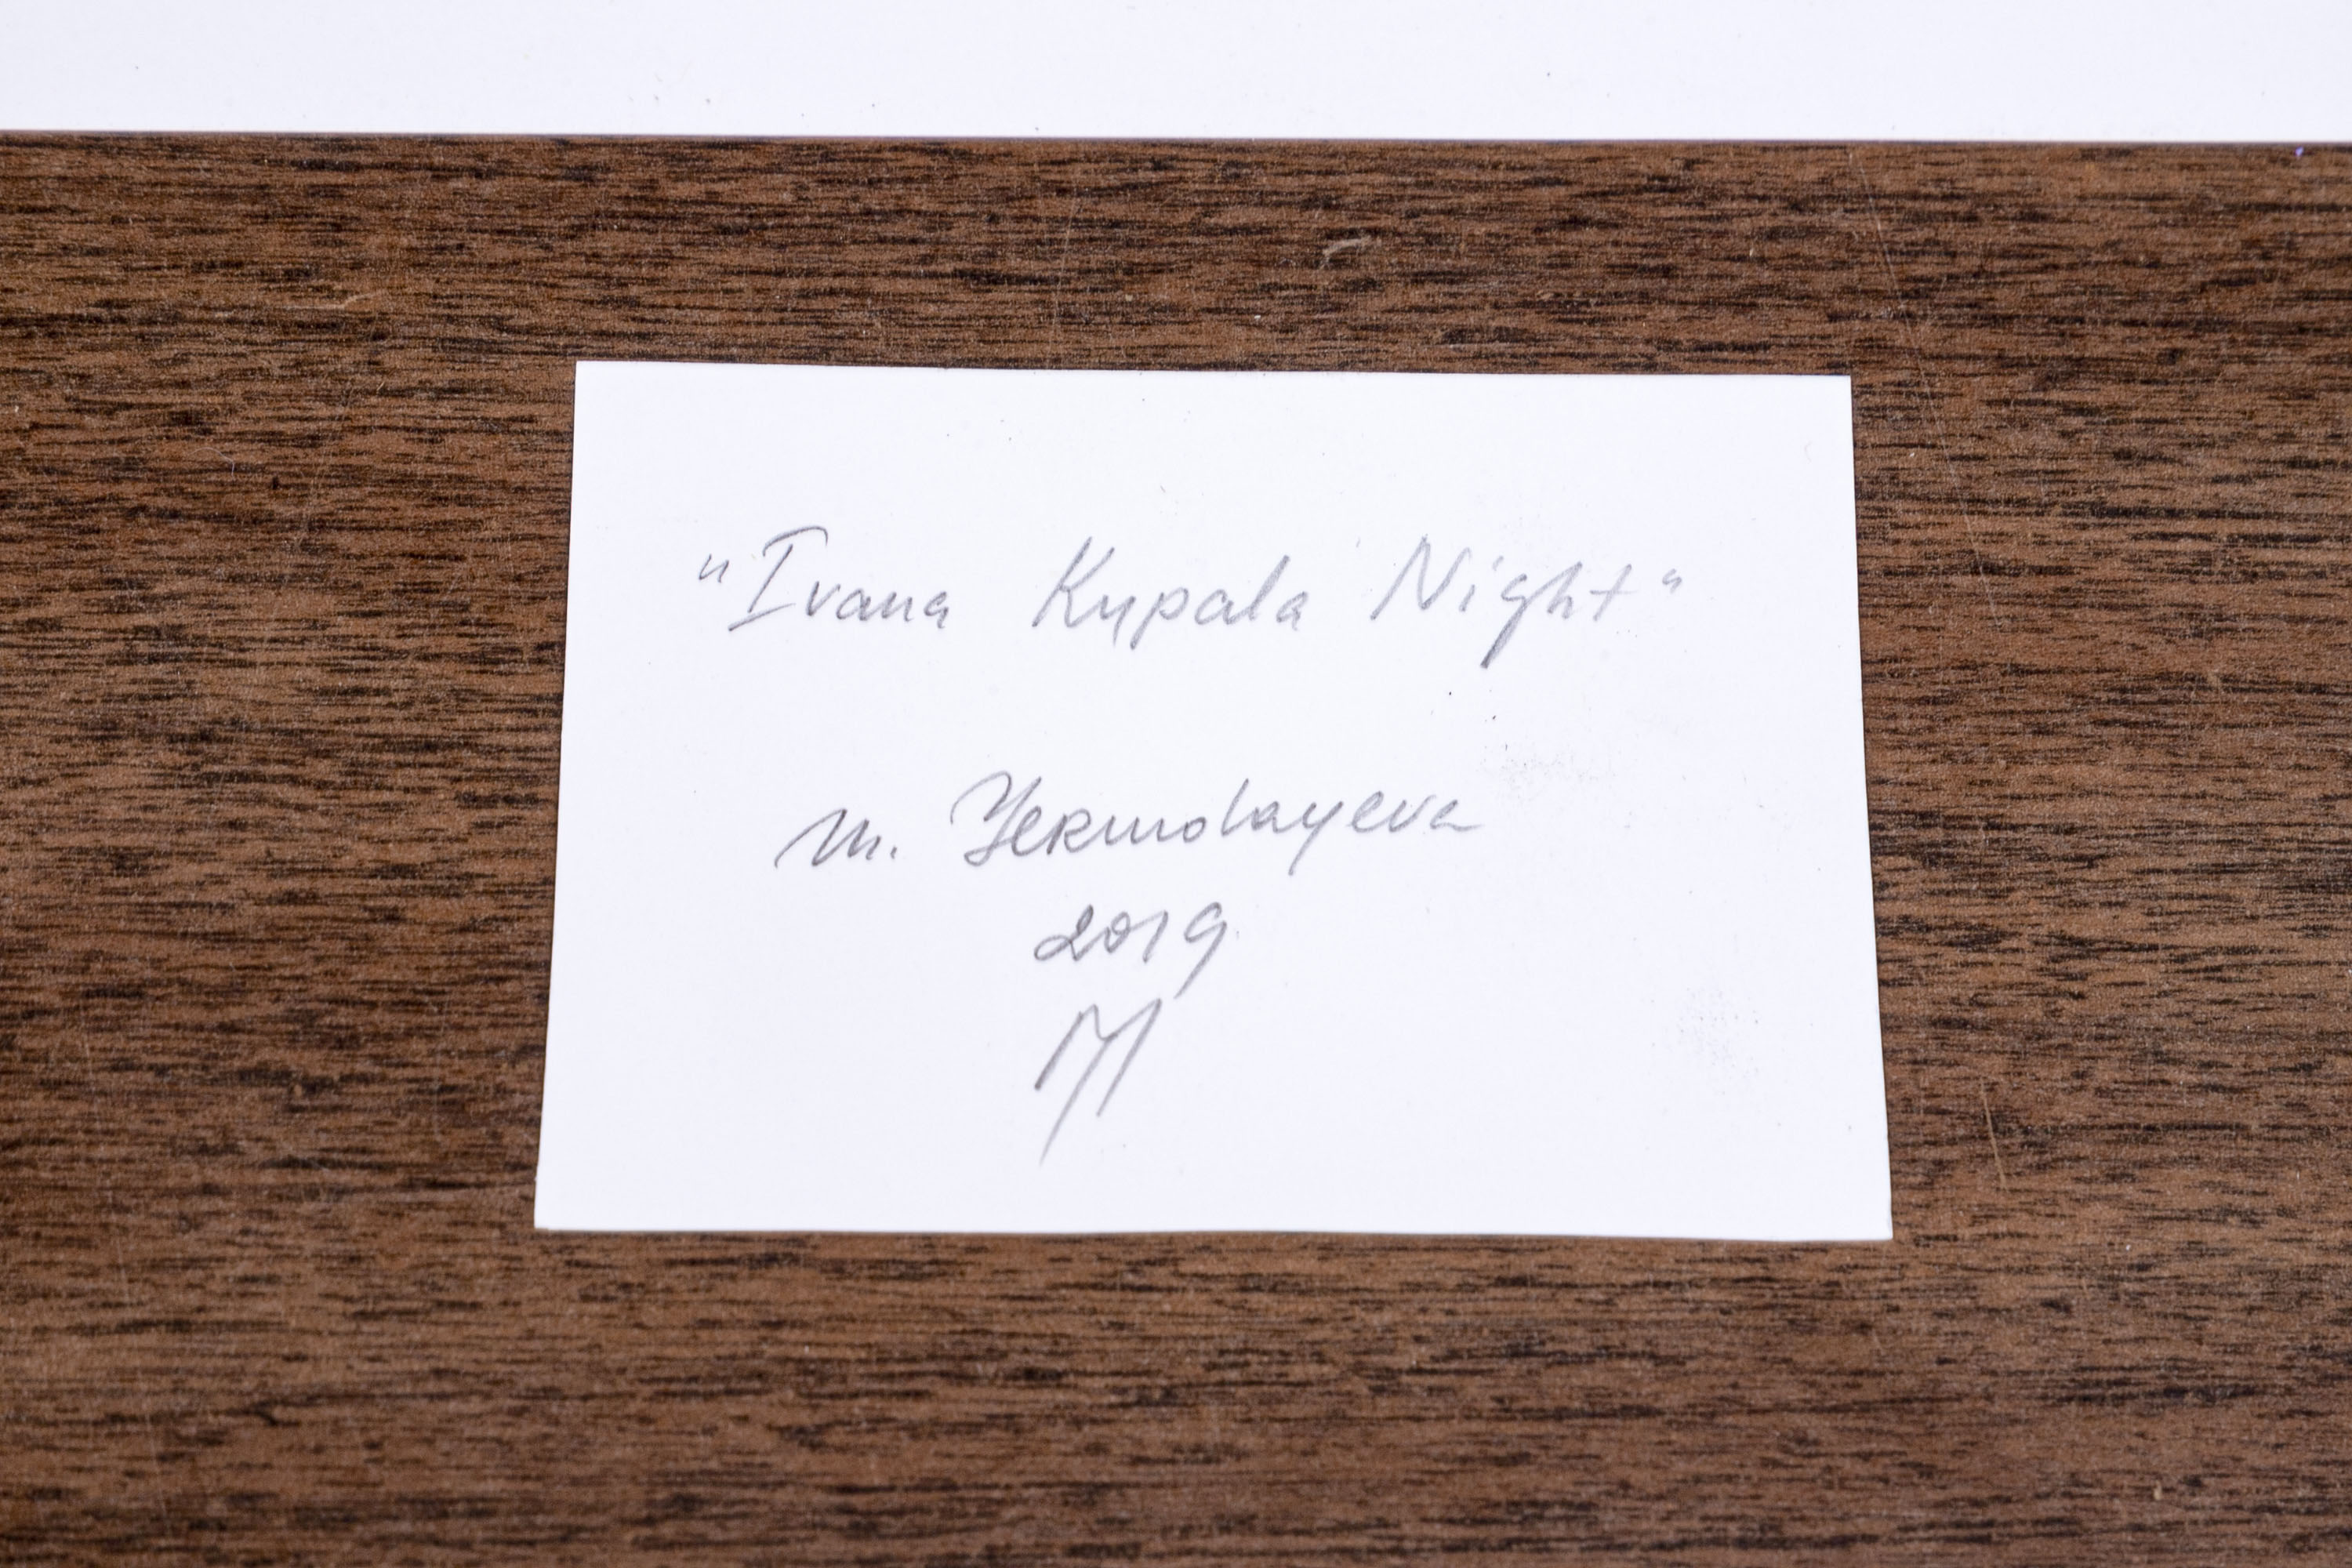 "Ivana Kupala Night"
M. Yermolayeva
2019